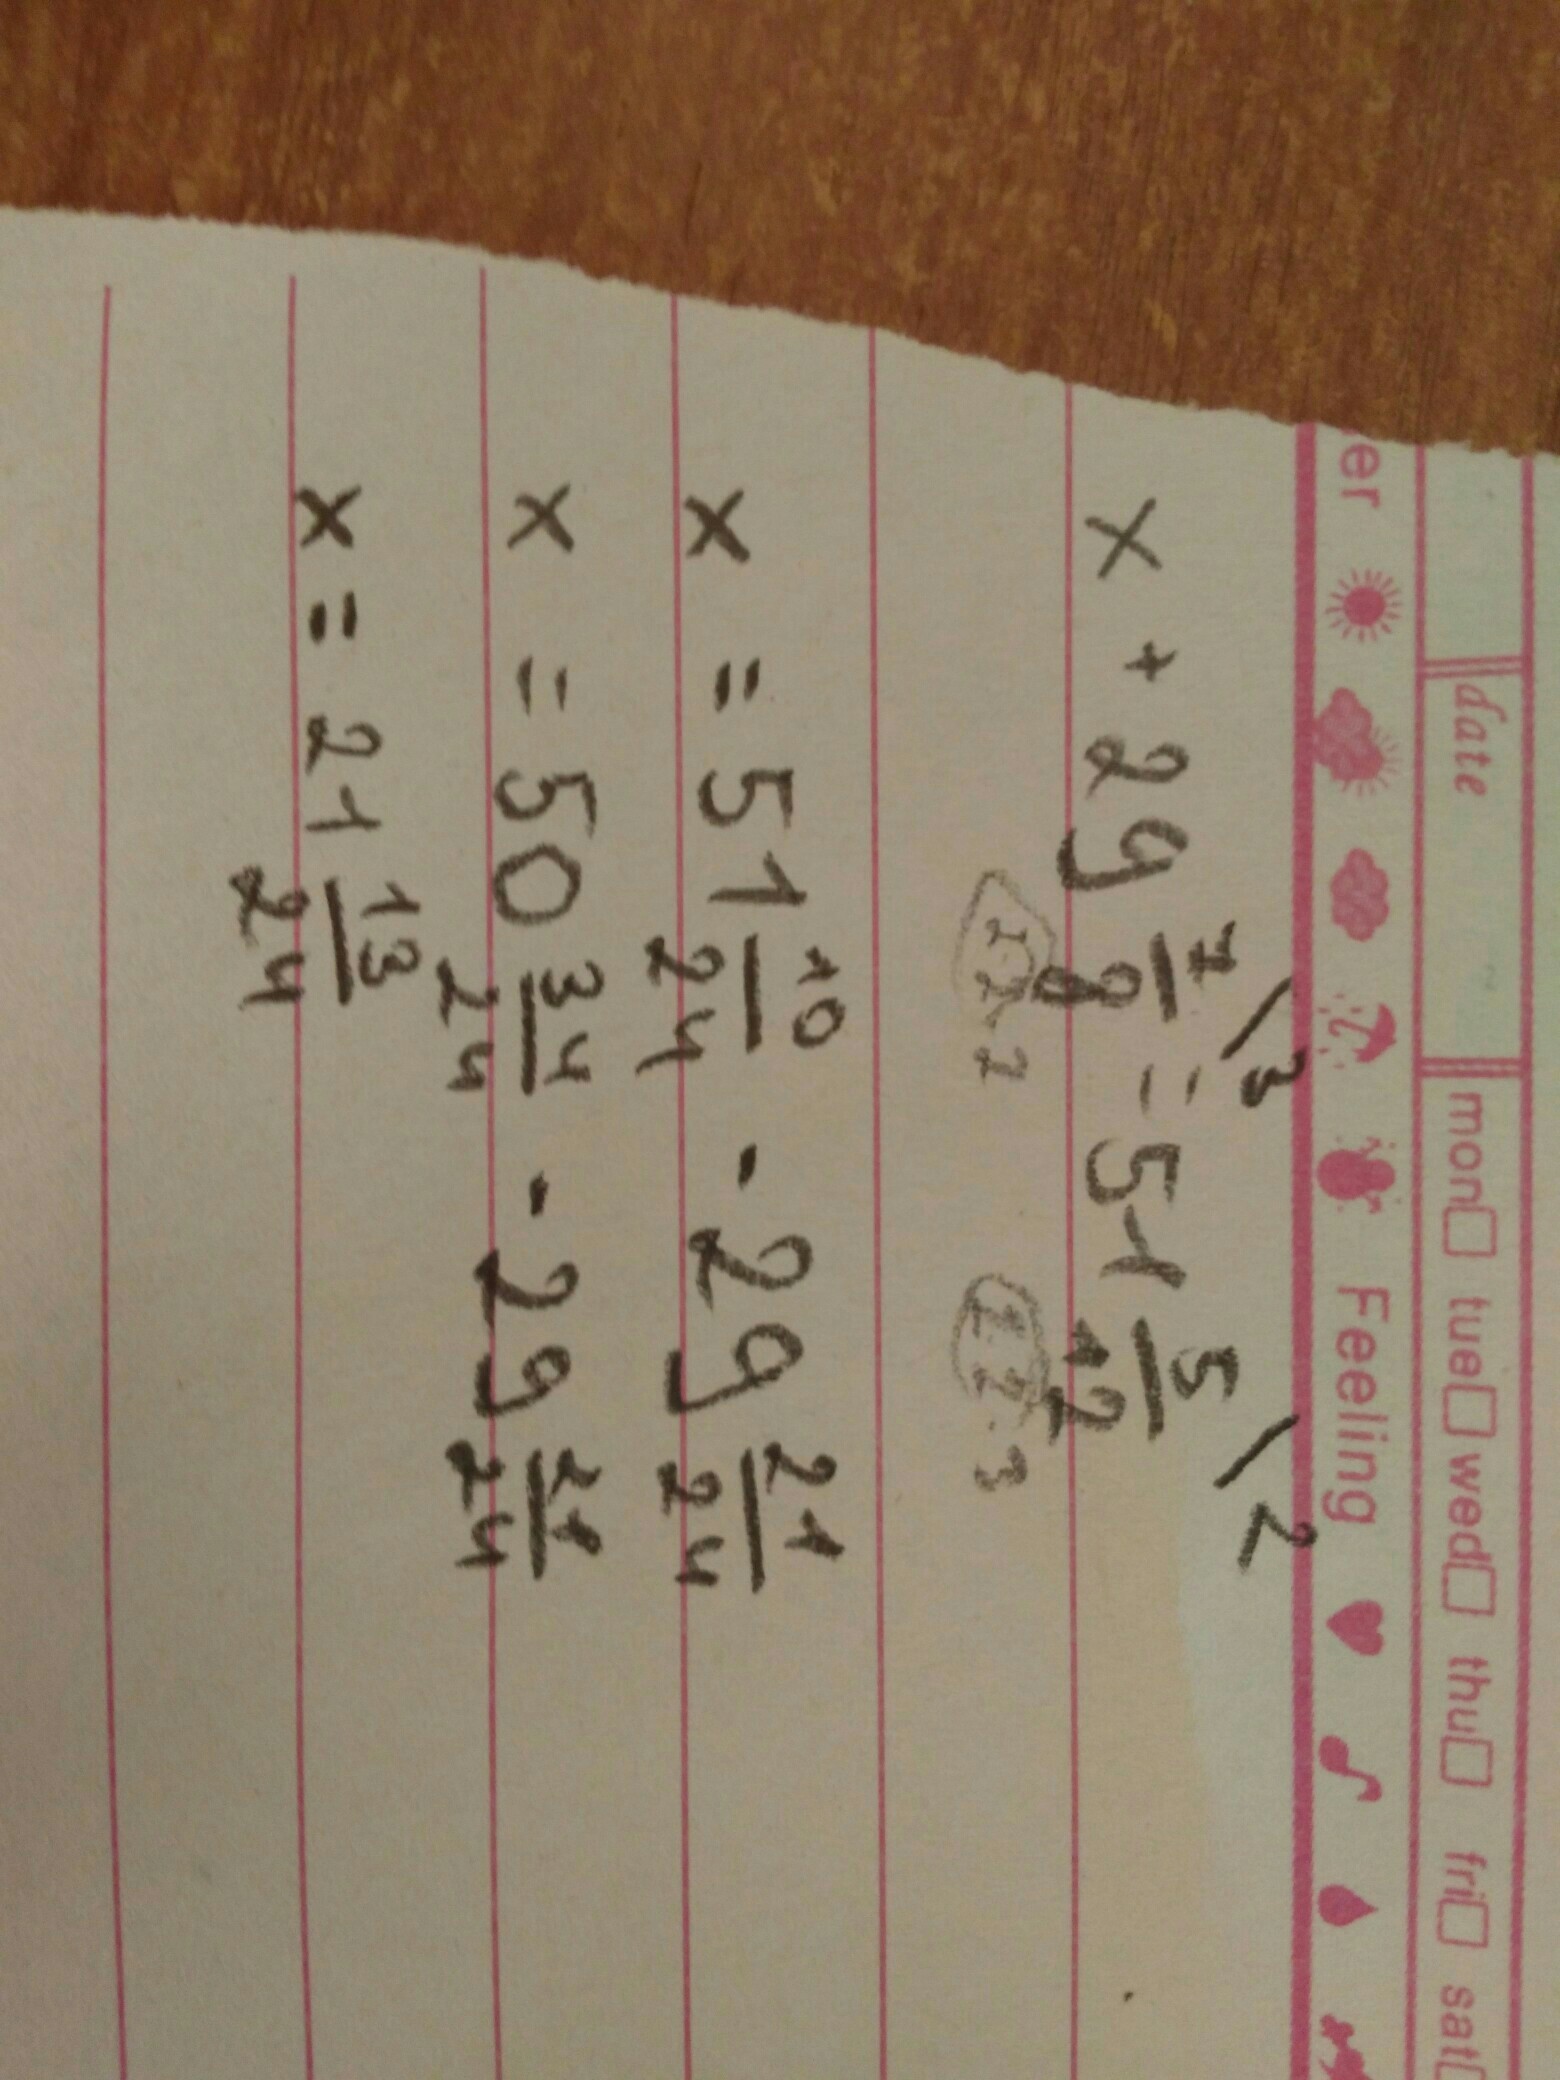 date mon tue wed thu fri sat
er Feeling
x + 29 7/8 \3 = 51 5/12 \2
2·2·2 2·2·3
x = 51 10/24 - 29 21/24
x = 50 34/24 - 29 21/24
x = 21 13/24